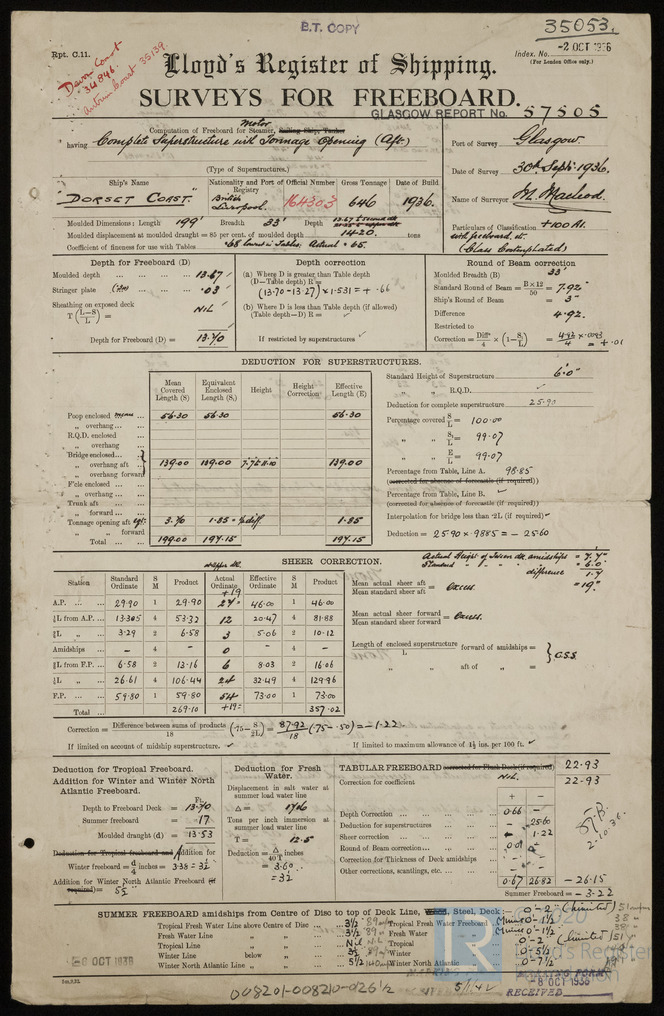 B.T. COPY
35053.
Rpt. C.11.
Index. No.
-2 OCT 1936
(For London Office only.)
Devon Coast
34846.
Autumn Coast 35139
Lloyd's Register of Shipping.
SURVEYS FOR FREEBOARD.
GLASGOW REPORT No. 57505
Computation of Freeboard for Steamer, Motor
having Complete Superstructure with Tonnage Opening (Aft)
(Type of Superstructures.)
Port of Survey Glasgow.
Date of Survey 30th Sept. 1936.
Name of Surveyor M. Macleod.
Particulars of Classification +100 A1.
with freeboard, etc.
(Class Contemplated)
Ship's Name Nationality and Port of Registry Official Number Gross Tonnage Date of Build
"DORSET COAST." British Liverpool. 164303 646 1936.
Moulded Dimensions: Length 199' Breadth 33' Depth 13.67
Moulded displacement at moulded draught = 85 per cent. of moulded depth 1420. tons
Coefficient of fineness for use with Tables .68 Actual = .65.
Depth for Freeboard (D) Depth correction Round of Beam correction
Moulded depth 13.67
Stringer plate .03
Sheathing on exposed deck
T (L-S/L) = NIL
Depth for Freeboard (D) = 13.70
(a) Where D is greater than Table depth
(D-Table depth) R =
(13.70-13.27) × 1.531 = + .66
(b) Where D is less than Table depth (if allowed)
(Table depth-D) R =
If restricted by superstructures
Moulded Breadth (B) 33'
Standard Round of Beam = B×12/50 = 7.92"
Ship's Round of Beam = 3"
Difference 4.92.
Restricted to
Correction = Diff/4 × (1-S/L) = 4.92/4 × .0093 = + .01
DEDUCTION FOR SUPERSTRUCTURES.
Mean Covered Length (S) Equivalent Enclosed Length (S₁) Height Height Correction Effective Length (E)
Poop enclosed 56.30 56.30 56.30
„ overhang
R.Q.D. enclosed
„ overhang
Bridge enclosed
„ overhang aft 139.00 139.00 139.00
„ overhang forward
F'cle enclosed
„ overhang
Trunk aft
„ forward
Tonnage opening aft 3.70 1.85 = ½ diff. 1.85
„ „ forward
Total 199.00 197.15 197.15
Standard Height of Superstructure 6'.0"
„ „ R.Q.D.
Deduction for complete superstructure 25.90
Percentage covered S/L = 100.00
„ „ S₁/L = 99.07
„ „ E/L = 99.07
Percentage from Table, Line A. 98.85
(corrected for absence of forecastle (if required))
Percentage from Table, Line B.
(corrected for absence of forecastle (if required))
Interpolation for bridge less than ·2L (if required)
Deduction = 25.90 × .9885 = - 25.60
SHEER CORRECTION.
Station Standard Ordinate S M Product Actual Ordinate Effective Ordinate S M Product
+19
A.P. 29.90 1 29.90 27 46.00 1 46.00
⅙L from A.P. 13.305 4 53.22 12 20.47 4 81.88
⅓L „ 3.29 2 6.58 3 5.06 2 10.12
Amidships - 4 - 0 - 4 -
⅓L from F.P. 6.58 2 13.16 6 8.03 2 16.06
⅙L „ 26.61 4 106.44 24 32.49 4 129.96
F.P. 59.80 1 59.80 54 73.00 1 73.00
Total 269.10 +19= 357.02
Actual Height of Tween dk. amidships = 7'.7"
Standard „ „ „ = 6'.0"
difference 1.7
= 19"
Mean actual sheer aft / Mean standard sheer aft = excess.
Mean actual sheer forward / Mean standard sheer forward = excess.
Length of enclosed superstructure / L forward of amidships =
„ „ aft of „ =
C.S.S.
Correction = Difference between sums of products / 18 (·75 - S/2L) = 87.92/18 (.75-.50) = -1.22
If limited on account of midship superstructure. If limited to maximum allowance of 1½ ins. per 100 ft.
Deduction for Tropical Freeboard.
Addition for Winter and Winter North
Atlantic Freeboard.
Depth to Freeboard Deck = 13.70
Summer freeboard = .17
Moulded draught (d) = 13.53
Deduction for Tropical freeboard and Addition for
Winter freeboard = d/4 inches = 3.38 = 3½
Addition for Winter North Atlantic Freeboard (if
required) = 5½
Deduction for Fresh
Water.
Displacement in salt water at
summer load water line
Δ =
Tons per inch immersion at
summer load water line
T = 12.5
Deduction = Δ/40T inches
= 3.60
= 3½
TABULAR FREEBOARD corrected for Flush Deck (if required) 22.93
Correction for coefficient NIL. 22.93
+ -
Depth Correction 0.66 -
Deduction for superstructures - 25.60
Sheer correction - 1.22
Round of Beam correction 0.01
Correction for Thickness of Deck amidships
Other corrections, scantlings, etc.
0.67 26.82 - 26.15
Summer Freeboard = - 3.22
2.10.36.
SUMMER FREEBOARD amidships from Centre of Disc to top of Deck Line, Wood, Steel, Deck: 0'-2" (limited)
Tropical Fresh Water Line above Centre of Disc 3½ Tropical Fresh Water Freeboard Minus 0'-1½
Fresh Water Line „ „ 3½ Fresh Water „ Minus 0'-1½
Tropical Line „ „ Nil Tropical „ 0'-2" (limited)
Winter Line below „ 3½ Winter „ 0'-5½
Winter North Atlantic Line „ „ 5½ Winter North Atlantic „ 0'-7½
-8 OCT 1936
-8 OCT 1936
RECEIVED
008201-008210-026½